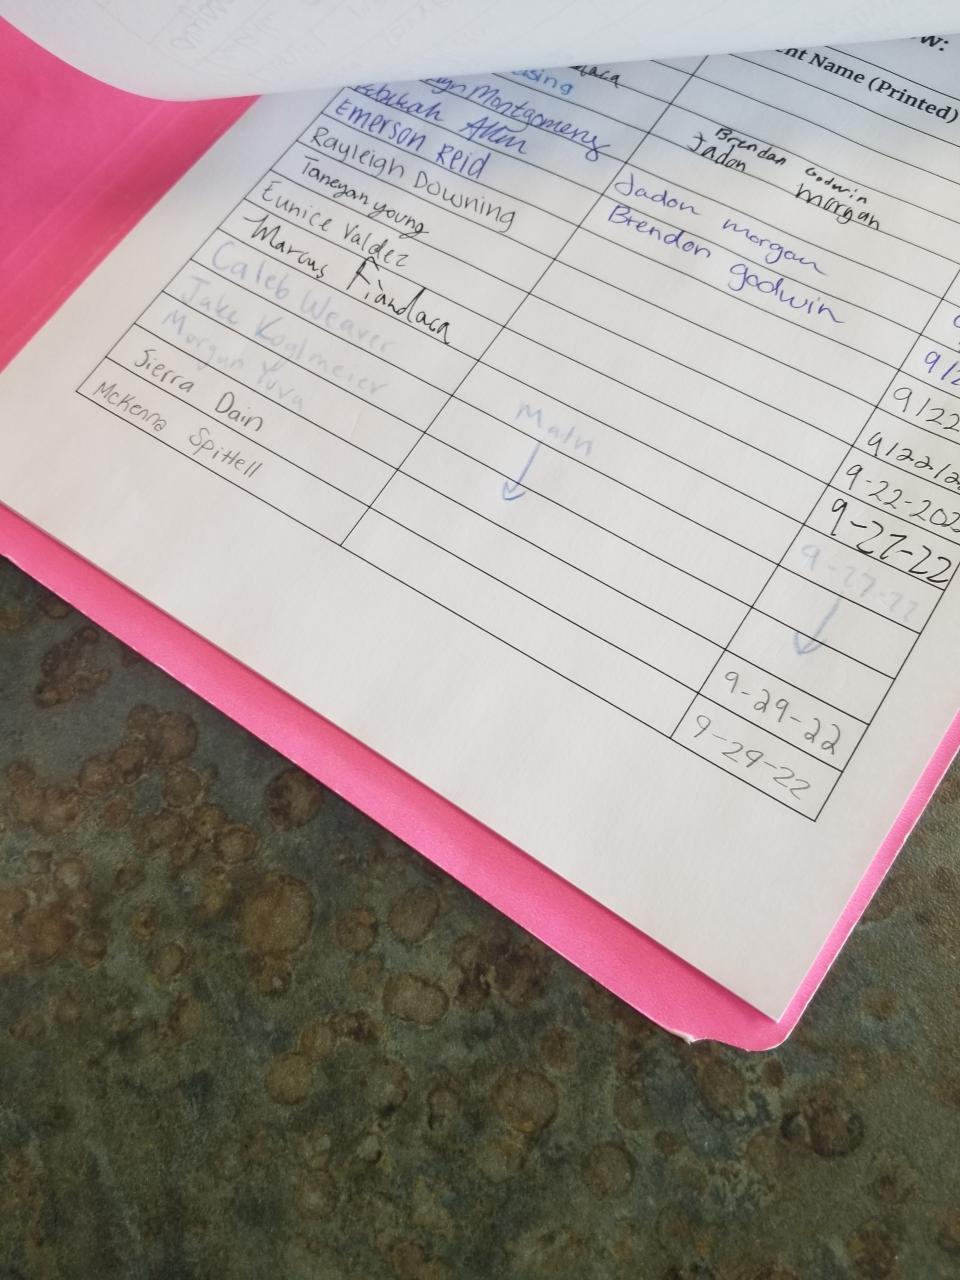 Name (Printed)
Montgomery
Emerson Reid
Rayleigh Downing
Taneyan young
Eunice Valdez
Marcus Fiandaca
Caleb Weaver
Jake Koglmeier
Morgan
Sierra Dain
McKenna Spittell
Brendan Godwin
Jadon Morgan
Jadon morgan
Brendon godwin
Math
9-22-202
9-27-22
9-27-22
9-29-22
9-29-22